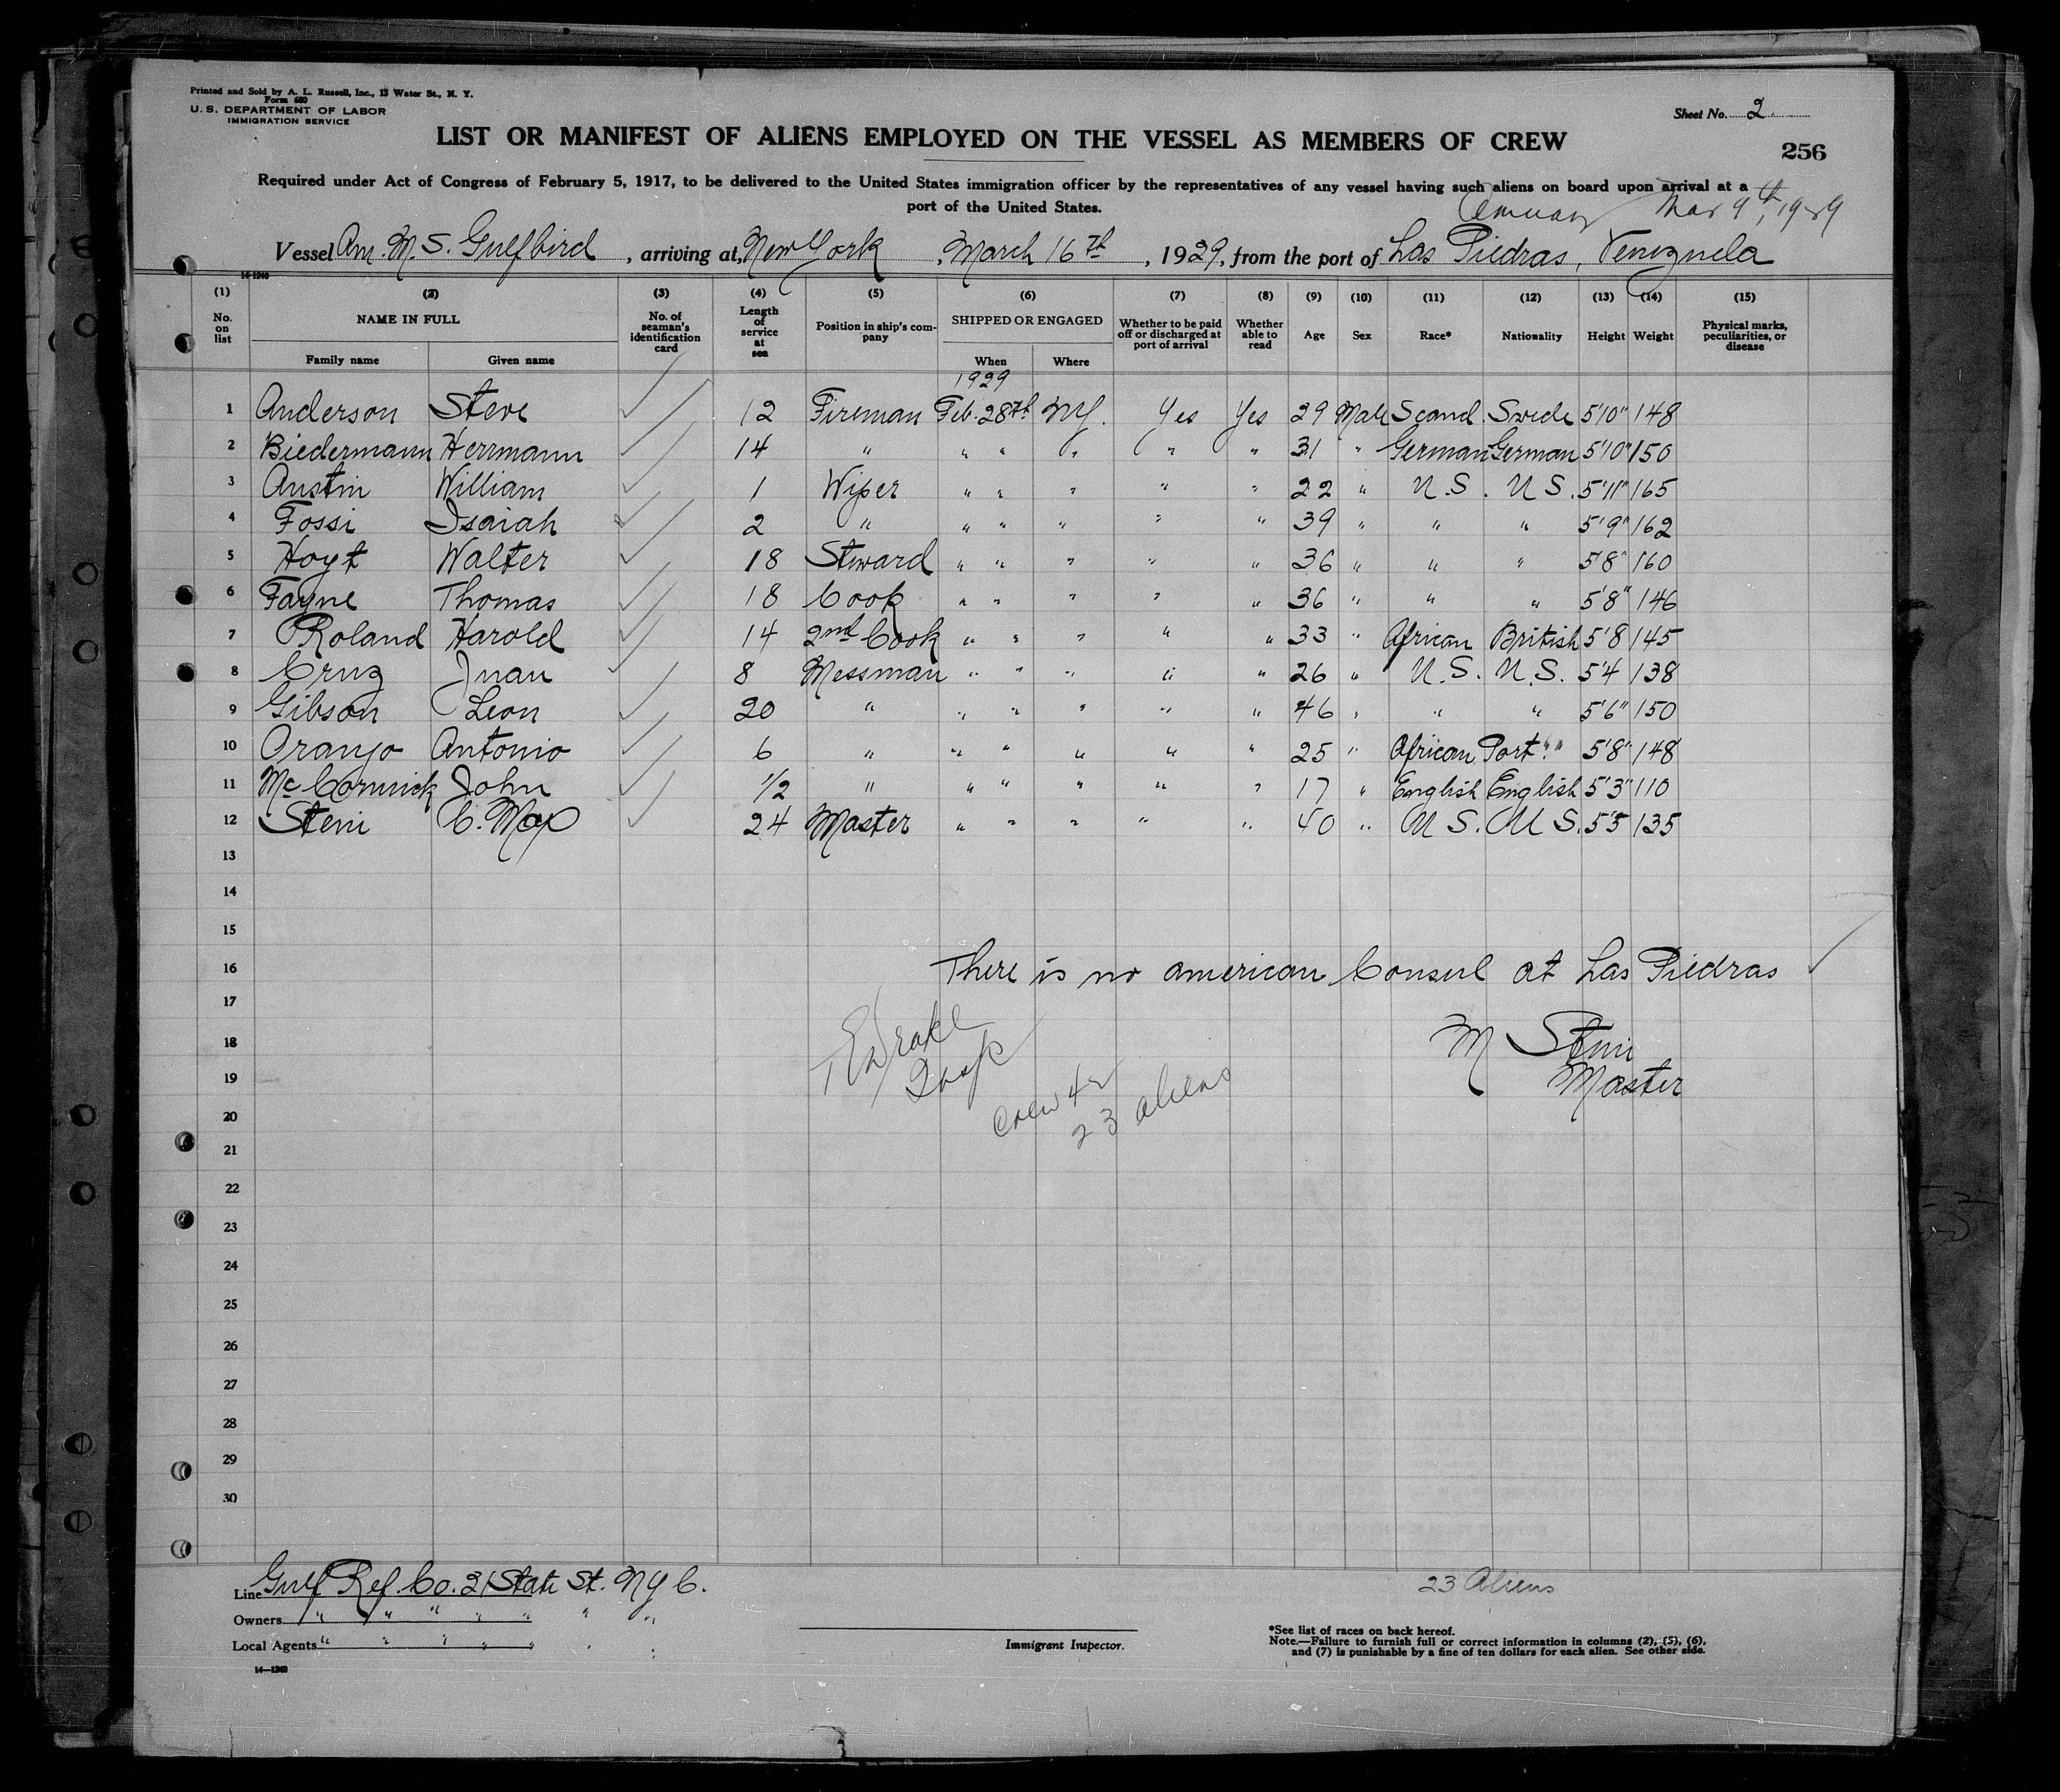 Printed and Sold by A. L. Russell, Inc., 13 Water St., N. Y.
Form 680
U. S. DEPARTMENT OF LABOR
IMMIGRATION SERVICE
Sheet No. 2
LIST OR MANIFEST OF ALIENS EMPLOYED ON THE VESSEL AS MEMBERS OF CREW
256
Required under Act of Congress of February 5, 1917, to be delivered to the United States immigration officer by the representatives of any vessel having such aliens on board upon arrival at a
port of the United States.
Mar 9th, 1929
Vessel Am. M. S. Gulfbird, arriving at, New York March 16th, 1929, from the port of Las Piedras, Venezuela
14-1240
(1) (2) (3) (4) (5) (6) (7) (8) (9) (10) (11) (12) (13) (14) (15)
No. on list NAME IN FULL Family name Given name No. of seaman's identification card Length of service at sea Position in ship's company SHIPPED OR ENGAGED When Where Whether to be paid off or discharged at port of arrival Whether able to read Age Sex Race* Nationality Height Weight Physical marks, peculiarities, or disease
1929
1 Anderson Steve 12 Fireman Feb. 28th N.Y. Yes Yes 29 Male Scand. Swede 5'10" 148
2 Biedermann Herrmann 14 " " " " " " 31 " German German 5'10" 150
3 Austin William 1 Wiper " " " " " 22 " U.S. U.S. 5'11" 165
4 Fossi Isaiah 2 " " " " " " 39 " " " 5'9" 162
5 Hoyt Walter 18 Steward " " " " " 36 " " " 5'8" 160
6 Fayne Thomas 18 Cook " " " " " 36 " " " 5'8" 146
7 Roland Harold 14 2nd Cook " " " " " 33 " African British 5'8 145
8 Cruz Juan 8 Messman " " " " " 26 " U.S. U.S. 5'4 138
9 Gibson Leon 20 " " " " " " 46 " " " 5'6" 150
10 Oranjo Antonio 6 " " " " " " 25 " African Port. " 5'8" 148
11 McCormick John 1/2 " " " " " " 17 " English English 5'3" 110
12 Steni C. Max 24 Master " " " " " 40 " U S. U S. 5'5 135
13
14
15
16 There is no american Consul at Las Piedras
17
18 M Steni
19 Master
Drake
Insp
Crew 42
23 aliens
20
21
22
23
24
25
26
27
28
29
30
Line Gulf Ref. Co. 21 State St. N Y C.
23 Aliens
Owners " " " " " " "
Local Agents " " " " " " "
14—1240
Immigrant Inspector.
*See list of races on back hereof.
Note.—Failure to furnish full or correct information in columns (2), (5), (6),
and (7) is punishable by a fine of ten dollars for each alien. See other side.